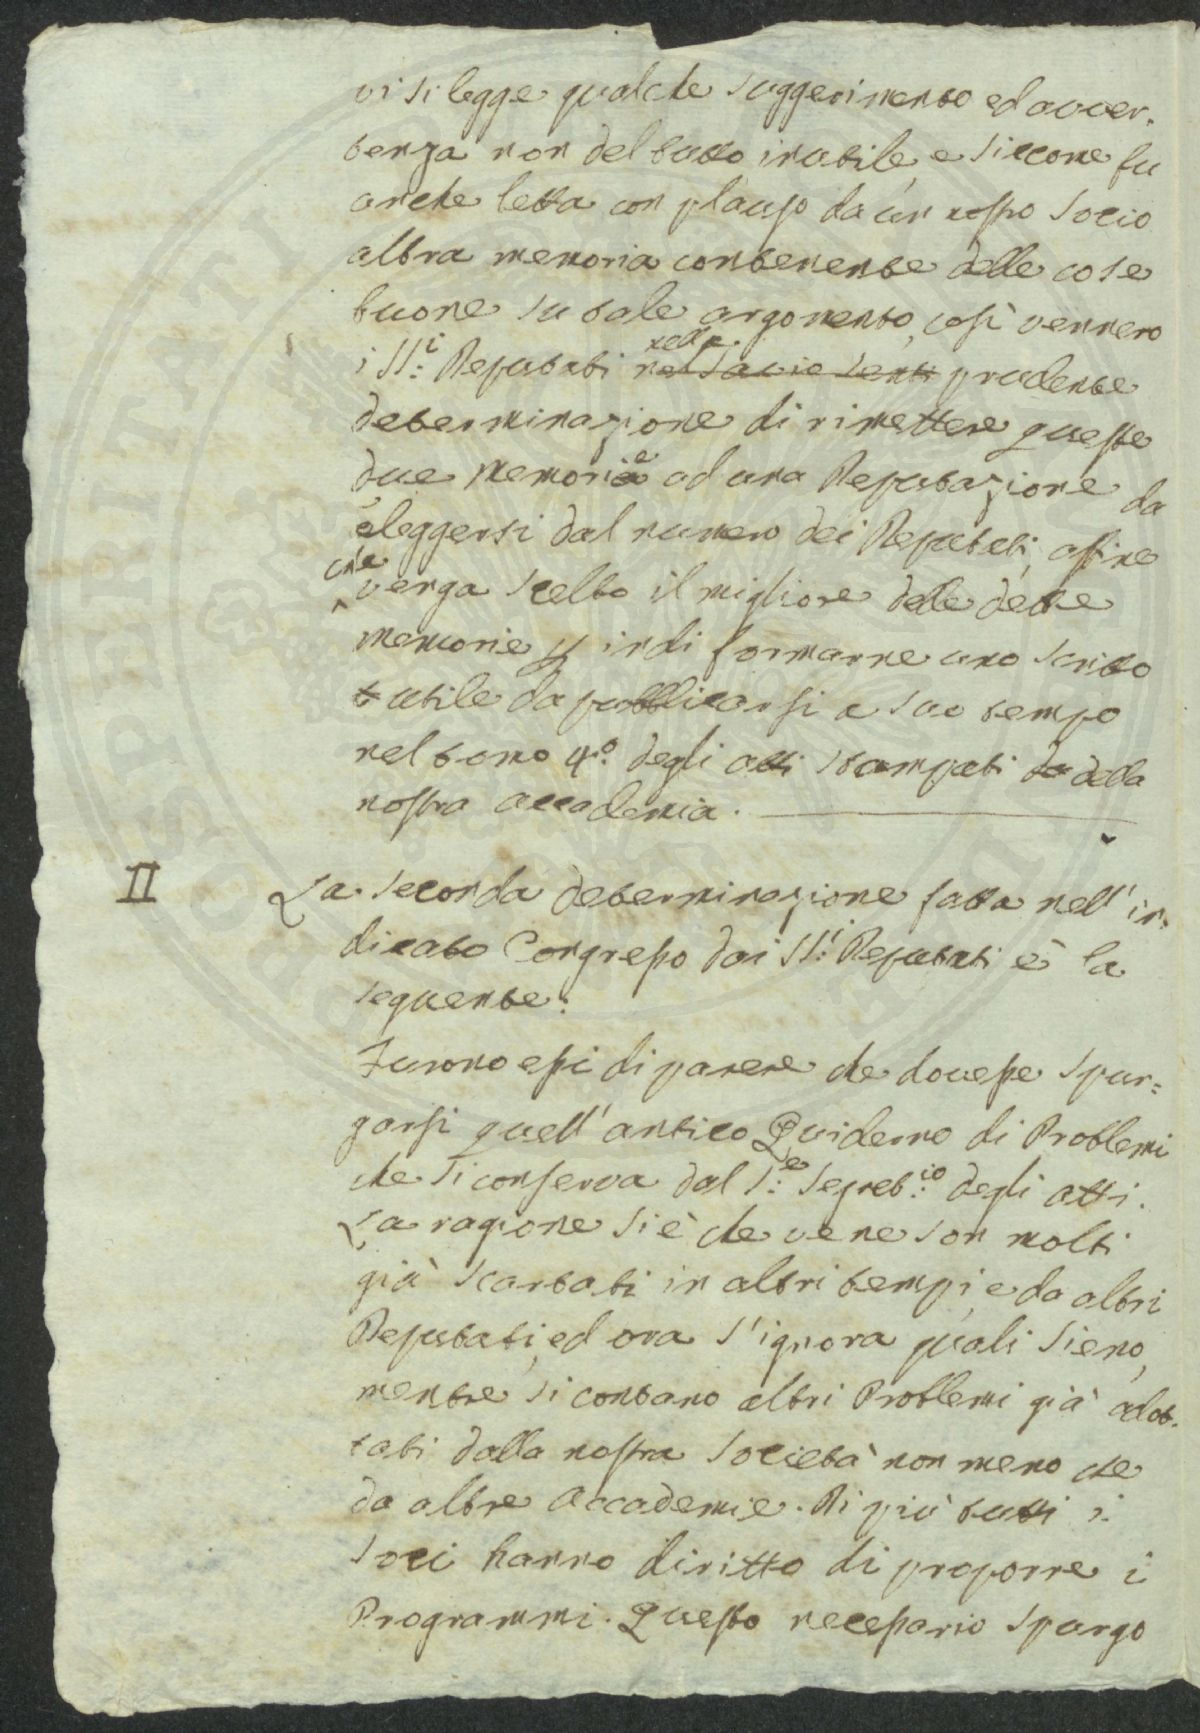 vi si legge qualche suggerimento ed avver-
tenza non del tutto inutile, e siccome fu
anche letta con plauso da un nostro Socio
altra memoria contenente delle cose
buone su tale argomento, così vennero
i SS:i Deputati nella nel savio senti prudente
determinazione di rimettere queste
due memorie ad una Deputazione da
eleggersi dal numero dei Deputati, affine
che venga scelto il migliore delle dette
memorie, indi formarne uno scritto
utile da pubblicarsi a suo tempo
nel tomo 4.o degli atti stampati da della
nostra accademia.
II La seconda determinazione fatta nell' in-
dicato Congresso dai SS:i Deputati è la
seguente:
Furono essi di parere che dovesse spur=
garsi quell' antico Quiderno di Problemi
che si conserva dal S:e Segret:io degli atti.
La ragione si è che ve ne son molti
già scartati in altri tempi, e da altri
Deputati, ed ora s'ignora quali sieno,
mentre si contano altri Problemi già adot-
tati dalla nostra Società non meno che
da altre accademie. Di più tutti i
Soci hanno diritto di proporre i
Programmi. Questo necessario spurgo